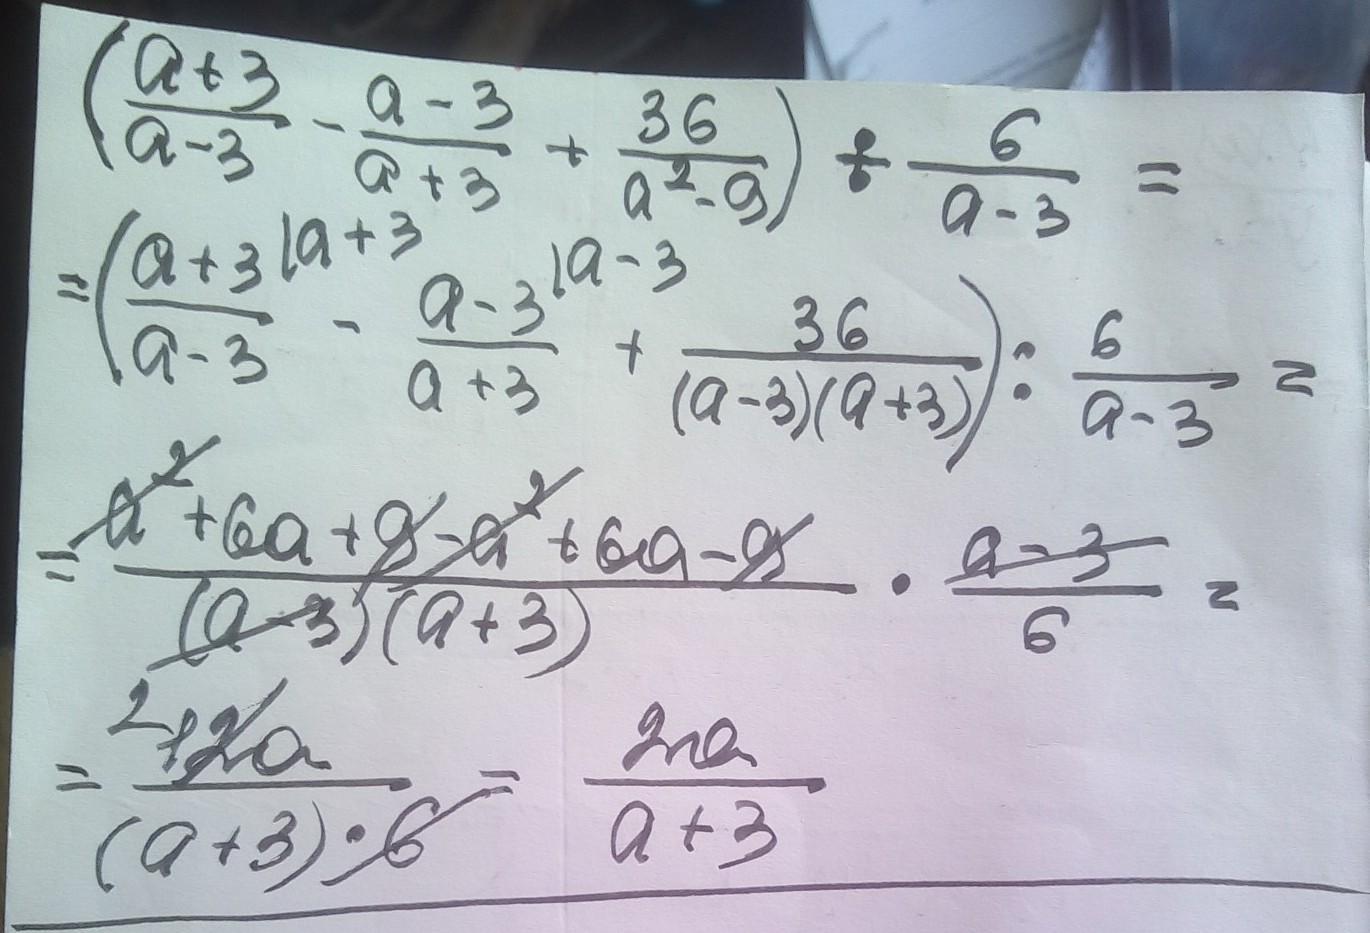 (a+3/a-3 - a-3/a+3 + 36/a²-9) ÷ 6/a-3 =
=(a+3|a+3/a-3 - a-3|a-3/a+3 + 36/(a-3)(a+3)) : 6/a-3 =
= a²+6a+9-a²+6a-9/(a-3)(a+3) · a-3/6 =
= 2 12a/(a+3)·6 = 2a/a+3